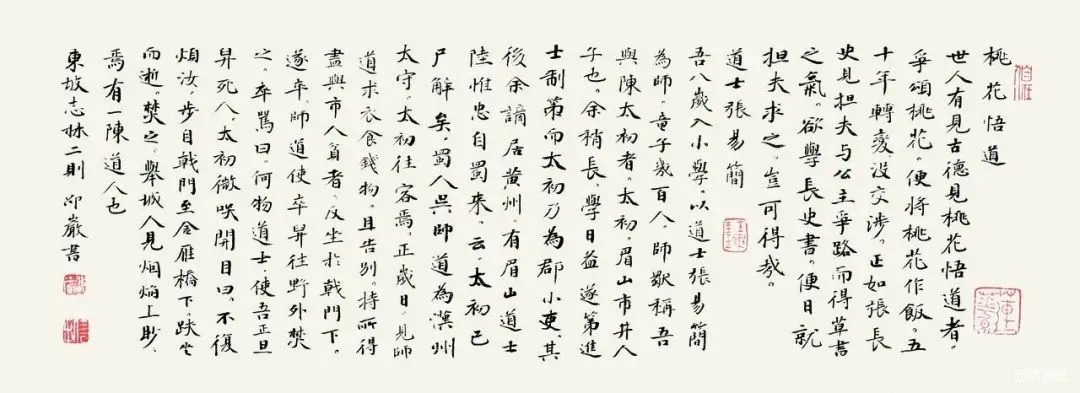 桃花悟道
世人有見古德見桃花悟道者。
爭頌桃花。便將桃花作飯。五
十年轉變沒交涉。正如張長
史見担夫与公主爭路而得草書
之氣。欲學長史書。便日就
担夫求之。豈可得哉。
道士張易簡
吾八歲入小學。以道士張易簡
為師。童子幾百人。師獨稱吾
與陳太初者。太初。眉山市井人
子也。余稍長。學日益。遂第進
士制第而太初乃為郡小吏。其
後余謫居黃州。有眉山道士
陸惟忠自蜀來。云。太初已
尸解矣。蜀人吳師道為漢州
太守。太初往客焉。正歲日。見師
道求衣食錢物。且告別。持所得
盡與市人貧者。反坐於戟門下。
遂卒。師道使卒舁往野外焚
之。卒罵曰。何物道士。使吾正旦
舁死人。太初微笑開目曰。不復
煩汝。步自戟門至金雁橋下。趺坐
而逝。焚之。舉城人見烟焰上眇。
焉有一陳道人也
東坡志林二則 邱巖書